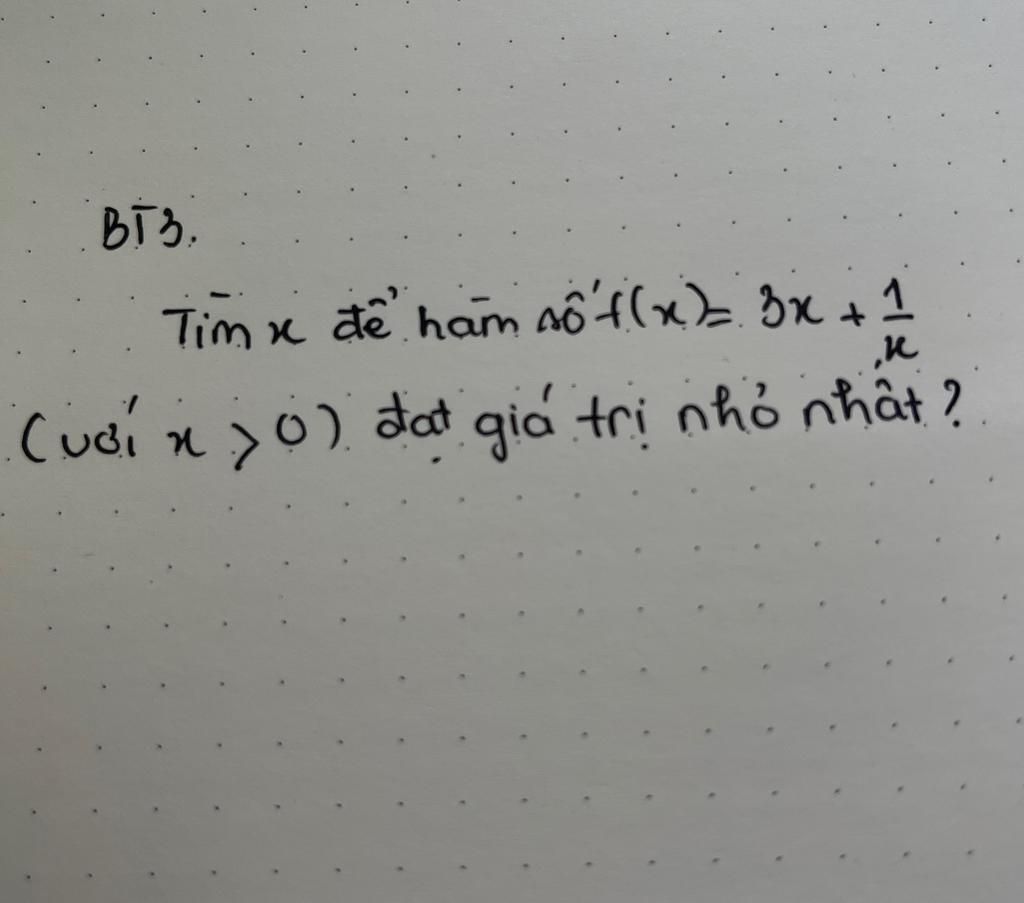 BT3.
Tìm x để hàm số f(x) = 3x + 1/x
(với x > 0) đạt giá trị nhỏ nhất ?